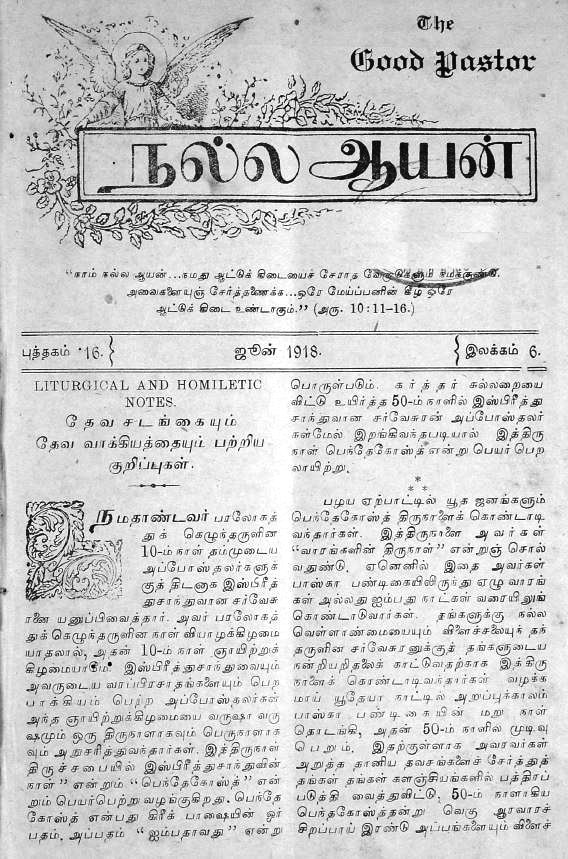 The
Good Pastor
நல்ல ஆயன்
“நாம் நல்ல ஆயன்...நமது ஆட்டுக் கிடையைச் சேராத
அவைகளையுஞ் சேர்த்தணைக்க...ஒரே மேய்ப்பனின் கீழ் ஒரே
ஆட்டுக் கிடை உண்டாகும்.” (அரு. 10:11-16.)
புத்தகம் 16.} ஜூன் 1918. {இலக்கம் 6.
LITURGICAL AND HOMILETIC
NOTES.
தேவ சடங்கையும்
தேவ வாக்கியத்தையும் பற்றிய
குறிப்புகள்.
நமதாண்டவர் பரலோகத்
துக் கெழுந்தருளின
10-ம் நாள் தம்முடைய
அப்போஸ்தலர்களுக்
குத் திடனாக இஸ்பிரீத்
துசாந்துவான சர்வேசு
ரனை யனுப்பிவைத்தார். அவர் பரலோகத்
துக் கெழுந்தருளின நாள் வியாழக்கிழமை
யாதலால், அதன் 10-ம் நாள் ஞாயிற்றுக்
கிழமையாகும். இஸ்பிரீத்துசாந்துவையும்
அவருடைய வரப்பிரசாதங்களையும் பெற
பாக்கியம் பெற்ற அப்போஸ்தலர்கள்
அந்த ஞாயிற்றுக்கிழமையை வருஷா வரு
ஷமும் ஒரு திருநாளாகவும் பெருநாளாக
வும் அநுசரித்துவந்தார்கள். இத்திருநாள்
திருச்சபையில் இஸ்பிரீத்துசாந்துவின்
நாள்” என்றும் “பெந்தேகோஸ்த்” என்
றும் பெயர்பெற்று வழங்குகிறது. பெந்தே
கோஸ்த் என்பது கிரீக் பாஷையின் ஓர்
பதம், அப்பதம் “ஐம்பதாவது” என்று
பொருள்படும். கர்த்தர் கல்லறையை
விட்டு உயிர்த்த 50-ம் நாளில் இஸ்பிரீத்து
சாந்துவான சர்வேசுரன் அப்போஸ்தலர்
கள்மேல் இறங்கிவந்தபடியால் இத்திரு
நாள் பெந்தேகோஸ்த் என்று பெயர் பெற
லாயிற்று.
* * *
பழைய ஏற்பாட்டில் யூத ஜனங்களும்
பெந்தேகோஸ்த் திருநாளைக் கொண்டாடி
வந்தார்கள். இத்திருநாளை அவர்கள்
“வாரங்களின் திருநாள்” என்றுஞ் சொல்
வதுண்டு. ஏனெனில் இதை அவர்கள்
பாஸ்கா பண்டிகையிலிருந்து ஏழு வாரங்
கள் அல்லது ஐம்பது நாட்கள் வரையிலுங்
கொண்டாடுவார்கள். தங்களுக்கு நல்ல
வெள்ளாண்மையையும் விளைச்சலையுந் தந்
தருளின சர்வேசுரனுக்குத் தங்களுடைய
நன்றியறிதலைக் காட்டுவதற்காக இத்திரு
நாளைக் கொண்டாடிவந்தார்கள் வழக்க
மாய் யூதேயா நாட்டில் அறுப்புக்காலம்
பாஸ்கா பண்டிகையின் மறு நாள்
தொடங்கி, அதன் 50-ம் நாளில் முடிவு
பெறும். இதற்குள்ளாக அவரவர்கள்
அறுத்த தானிய தவசங்களைச் சேர்த்துத்
தங்கள் தங்கள் களஞ்சியங்களில் பத்திரப்
படுத்தி வைத்துவிட்டு, 50-ம் நாளாகிய
பெந்தகோஸ்த்தன்று வெகு ஆரவாரச்
சிறப்பாய் இரண்டு அப்பங்களையும் விளைச்